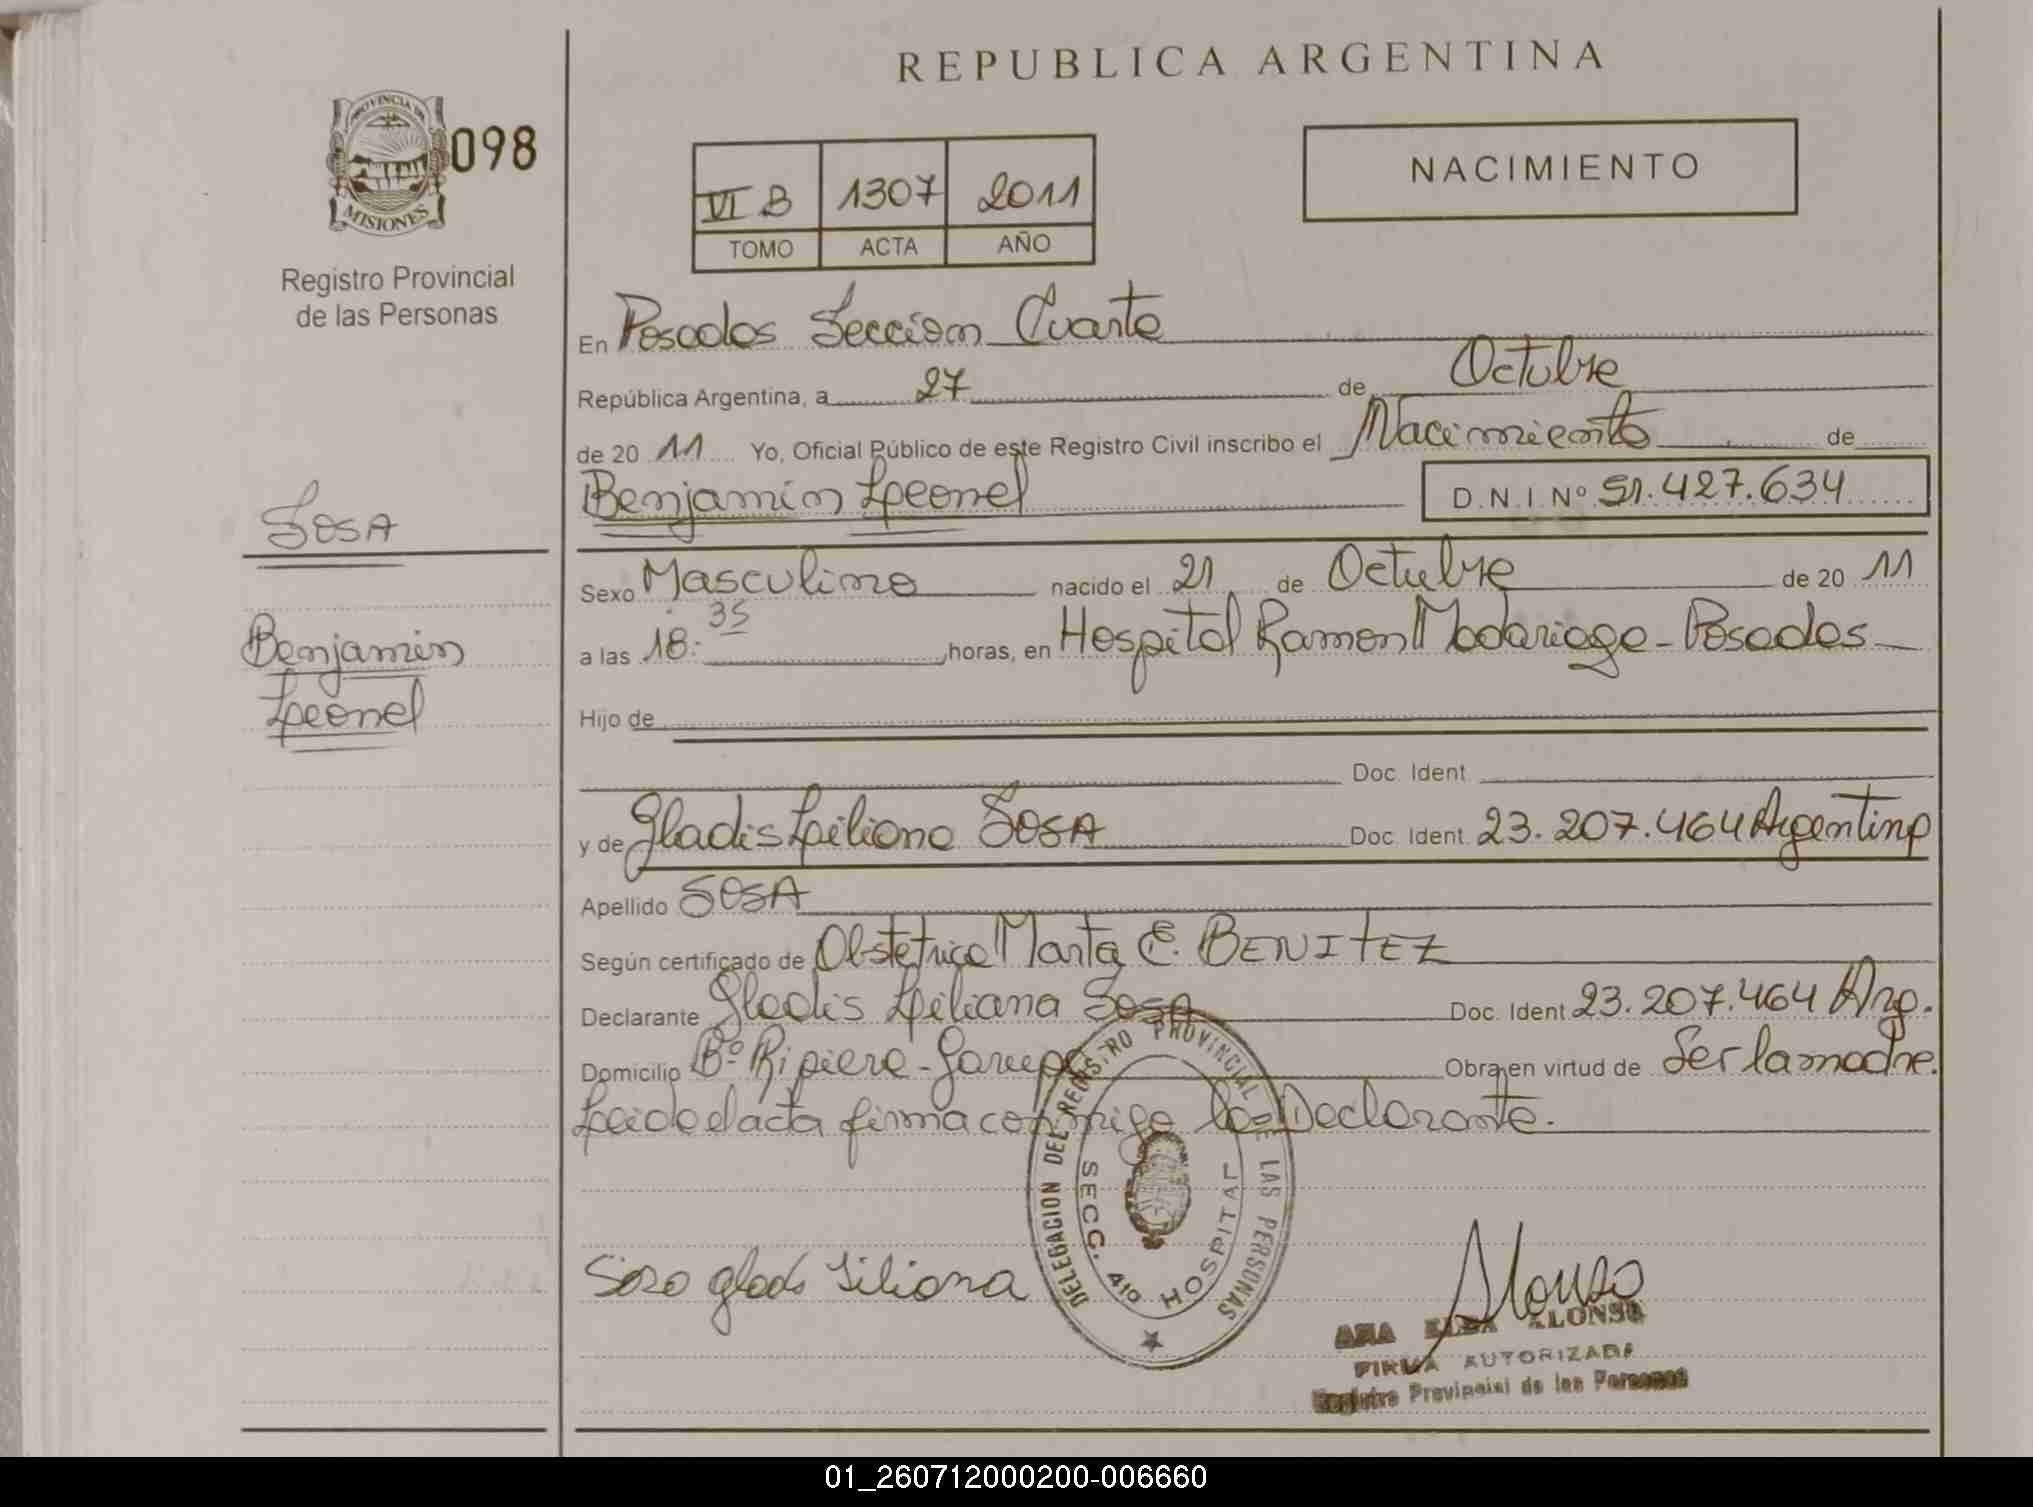 REPUBLICA ARGENTINA
PROVINCIA DE
MISIONES
098
Registro Provincial
de las Personas
VI B 1307 2011
TOMO ACTA AÑO
NACIMIENTO
En Posadas Sección Cuarta
República Argentina, a 27 de Octubre
de 20 11 Yo, Oficial Público de este Registro Civil inscribo el Nacimiento de
Benjamín Leonel D.N.I. Nº 51.427.634
SOSA
Benjamín
Leonel
Sexo Masculino nacido el 21 de Octubre de 20 11
a las 18:35 horas, en Hospital Ramon Madariaga - Posadas
Hijo de
Doc. Ident
y de Gladis Liliana SOSA Doc. Ident. 23.207.464 Argentina
Apellido SOSA
Según certificado de Obstetrica Marta E. BENITEZ
Declarante Gladis Liliana Sosa Doc. Ident 23.207.464 Arg.
Domicilio Bº Ripiera - Garupa Obra en virtud de Ser la madre.
Leida el acta firma conmigo la Declarante.
DELEGACION DEL REGISTRO PROVINCIAL DE LAS PERSONAS
SECC. 4to HOSPITAL
Soso glads liliana
Alonso
ANA ELBA ALONSO
FIRMA AUTORIZADA
Registro Provincial de las Personas
01_260712000200-006660